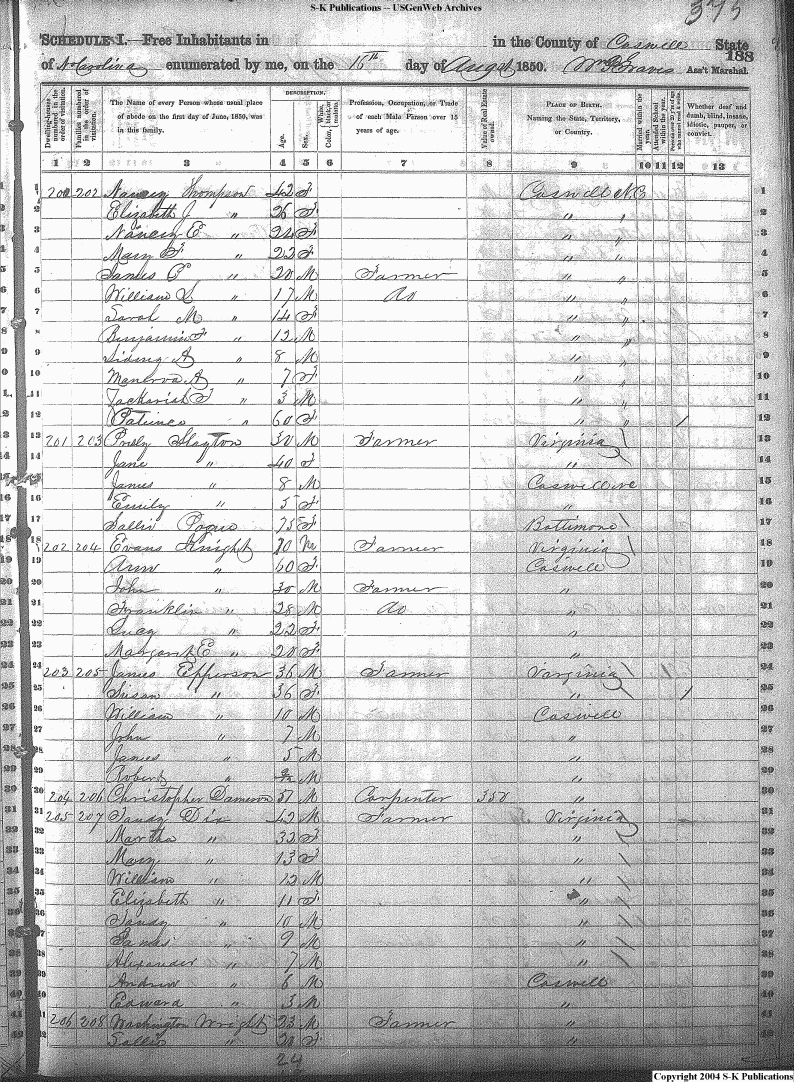 S-K Publications -- USGenWeb Archives
375
SCHEDULE I.—Free Inhabitants in in the County of Caswell State
188
of N Carolina enumerated by me, on the 16th day of Augst 1850. Wm Graves Ass't Marshal.
Dwelling-houses numbered in the order of visitation.
Families numbered in the order of visitation.
The Name of every Person whose usual place of abode on the first day of June, 1850, was in this family.
DESCRIPTION.
Age.
Sex.
White, Color, black, or mulatto.
Profession, Occupation, or Trade of each Male Person over 15 years of age.
Value of Real Estate owned.
PLACE OF BIRTH. Naming the State, Territory, or Country.
Married within the year.
Attended School within the year.
Persons over 20 y'rs of age who cannot read & write.
Whether deaf and dumb, blind, insane, idiotic, pauper, or convict.
1 2 3 4 5 6 7 8 9 10 11 12 13
1 200 202 Nancy Thompson 42 F Caswell N.C 1
2 Elizabeth J " 26 F " " 2
3 Nancy E " 24 F " " 3
4 Mary F " 22 F " " 4
5 James C " 20 M Farmer " " 5
6 William S " 17 M do " " 6
7 Sarah M " 14 F " " 7
8 Benjamin F " 12 M " " 8
9 Sidney A " 8 M " " 9
10 Manerva A " 7 F " " 10
11 Zackariah T " 3 M " " 11
12 Patience " 60 F " " / 12
13 201 203 Slayton 30 M Farmer Virginia 13
14 Jane " 40 F " 14
15 James " 8 M Caswell NC 15
16 Emily " 5 F " 16
17 Sallie Pogue 75 F Baltimore 17
18 202 204 Evans Knight 70 M Farmer Virginia 18
19 Ann " 60 F Caswell 19
20 John " 30 M Farmer " 20
21 Franklin " 28 M do " 21
22 Lucy " 22 F " 22
23 Margaret E " 20 F " 23
24 203 205 James Epperson 36 M Farmer Virginia 24
25 Susan " 36 F " / 25
26 William " 10 M Caswell 26
27 John " 7 M " 27
28 James " 5 M " 28
29 Robert " M " 29
30 204 206 Christopher Dameron 51 M Carpenter 350 " 30
31 205 207 Sandy Dix 42 M Farmer Virginia 31
32 Martha " 32 F " 32
33 Mary " 13 F " 33
34 William " 12 M " 34
35 Elizabeth " 11 F " 35
36 Sandy " 10 M " 36
37 James " 9 M " 37
38 Alexander " 7 M " 38
39 Andrew " 6 M Caswell 39
40 Edward " 3 M " 40
41 206 208 Washington Wright 23 M Farmer " 41
42 Sallie " 20 F " 42
24
Copyright 2004 S-K Publications